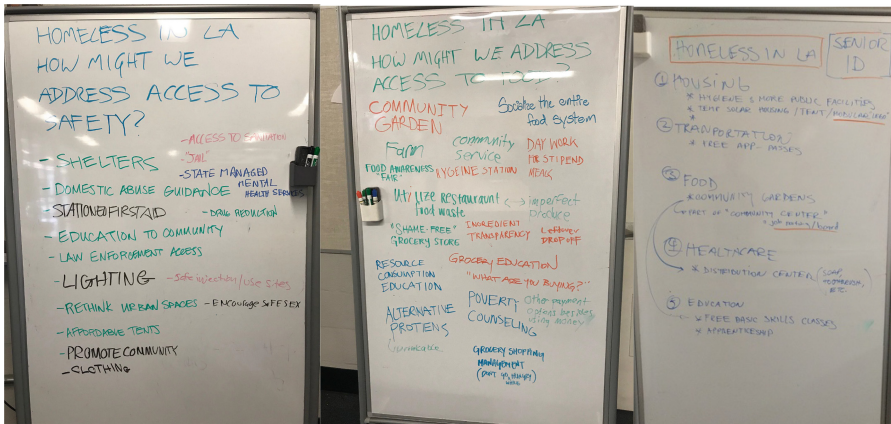 HOMELESS IN LA
HOW MIGHT WE
ADDRESS ACCESS TO
SAFETY?
- ACCESS TO SANITATION
- SHELTERS
- "JAIL"
- STATE MANAGED
MENTAL
HEALTH SERVICES
- DOMESTIC ABUSE GUIDANCE
- STATIONED FIRST AID
- DRUG REDUCTION
- EDUCATION TO COMMUNITY
- LAW ENFORCEMENT ACCESS
- LIGHTING
- Safe injection/use sites
- RETHINK URBAN SPACES
- ENCOURAGE SAFE SEX
- AFFORDABLE TENTS
- PROMOTE COMMUNITY
- CLOTHING
HOMELESS IN LA
HOW MIGHT WE ADDRESS
ACCESS TO FOOD?
COMMUNITY
GARDEN
Socialize the entire
food system
Farm
community
service
DAY WORK
FOR STIPEND
MEALS
FOOD AWARENESS
"FAIR"
HYGEINE STATION
Utilize restaurant
food waste
imperfect
produce
"SHAME-FREE"
GROCERY STORE
INGREDIENT
TRANSPARENCY
Leftover
DROP OFF
RESOURCE
CONSUMPTION
EDUCATION
GROCERY EDUCATION
"WHAT ARE YOU BUYING?"
ALTERNATIVE
PROTEINS
POVERTY
COUNSELING
Other payment
options besides
using money
GROCERY SHOPPING
MANAGEMENT
(DON'T GO HUNGRY
HOMELESS IN LA
SENIOR
ID
① HOUSING
* HYGIENE & MORE PUBLIC FACILITIES
* TEMP SOLAR HOUSING / TENT /
② TRANPORTATION
* FREE APP - PASSES
③ FOOD
* COMMUNITY GARDENS
PART OF "COMMUNITY CENTER"
board
④ HEALTHCARE
* DISTRIBUTION CENTER (SOAP,
TOOTHBRUSH,
ETC.
⑤ EDUCATION
* FREE BASIC SKILLS CLASSES
* APPRENTICESHIP